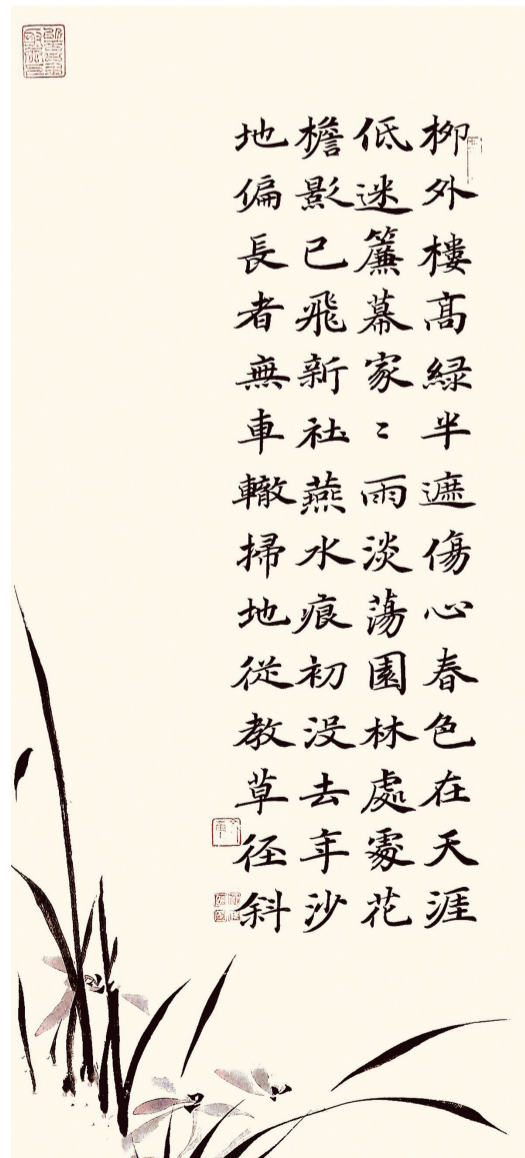 柳外樓高綠半遮傷心春色在天涯
低迷簾幕家〻雨淡蕩園林處處花
檐影已飛新社燕水痕初沒去年沙
地偏長者無車轍掃地從教草徑斜